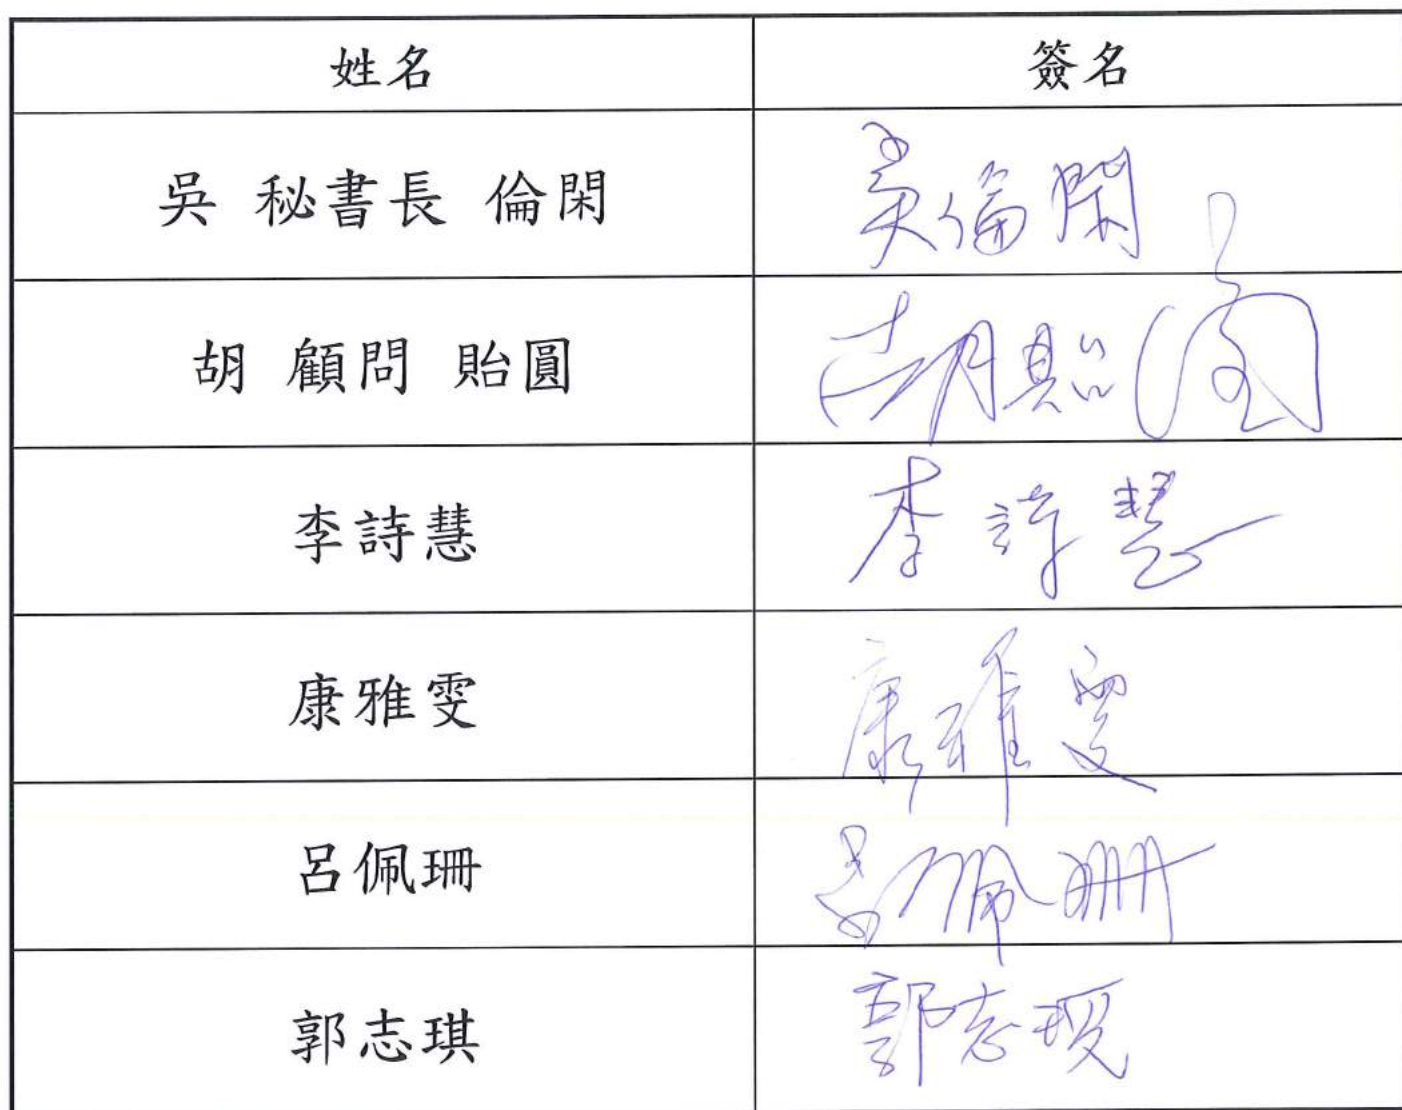 姓名 簽名
吳 秘書長 倫閑 吳倫閑
胡 顧問 貽圓 胡貽圓
李詩慧 李詩慧
康雅雯 康雅雯
呂佩珊 呂佩珊
郭志琪 郭志琪